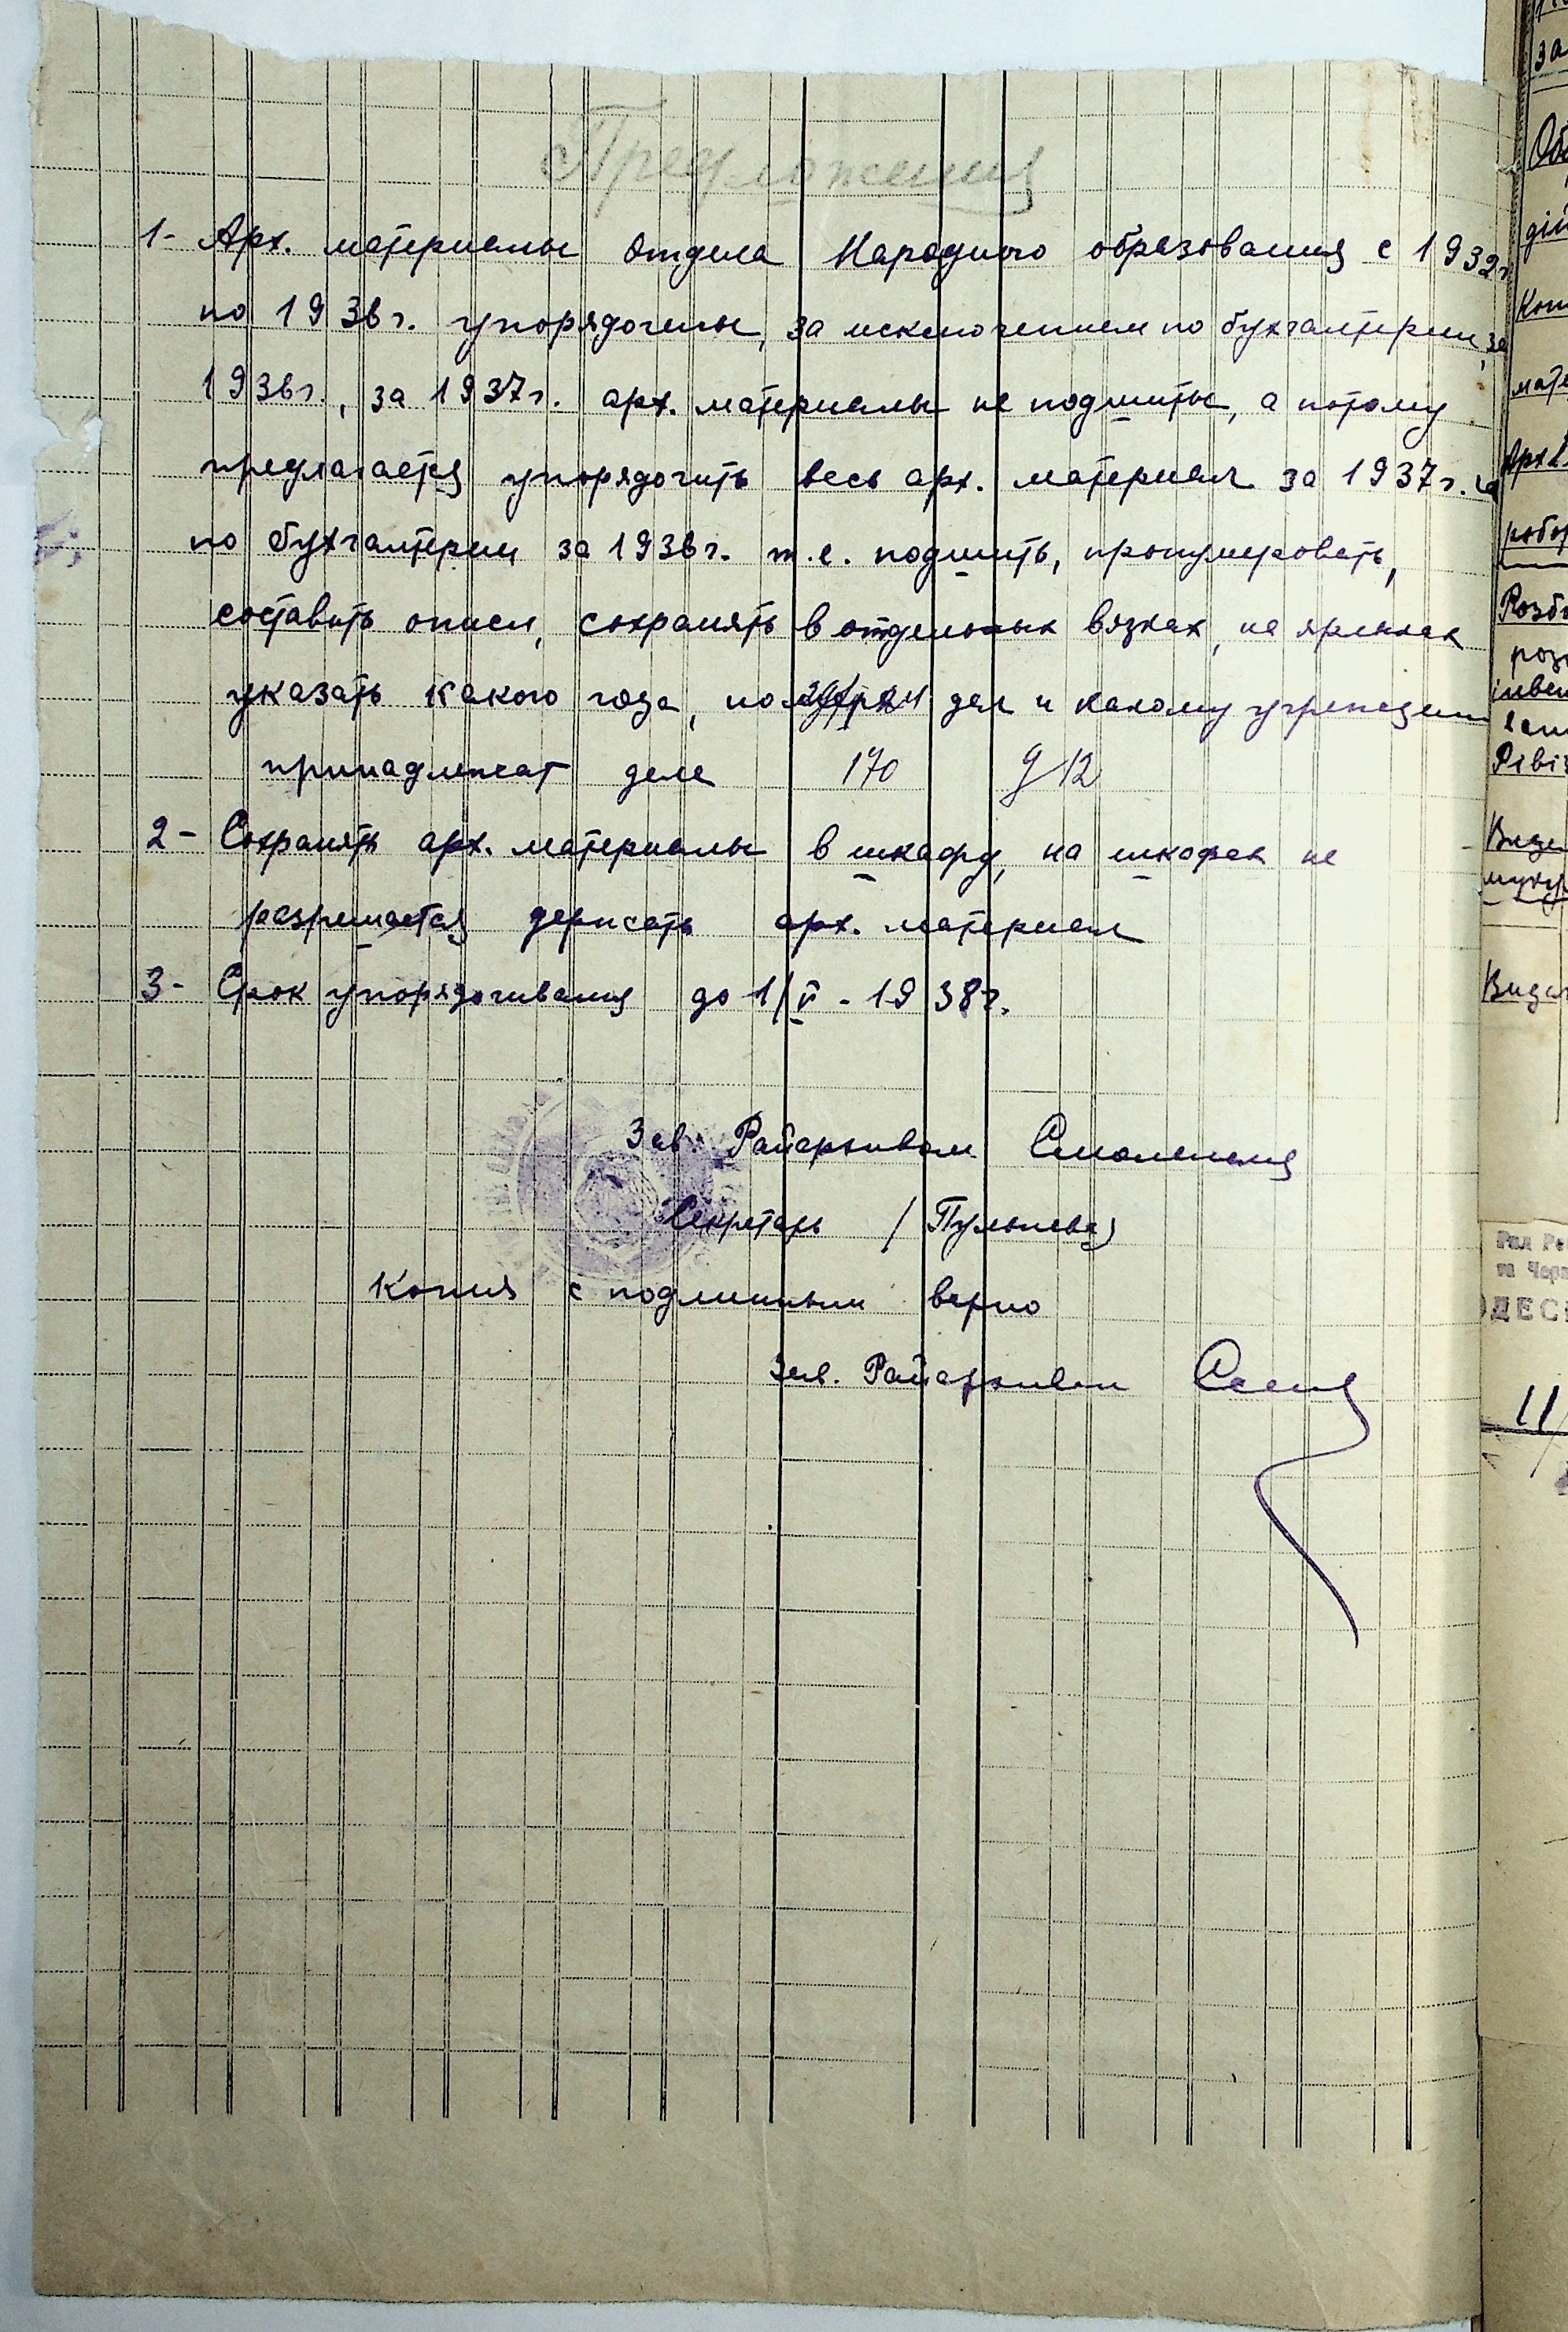 Предложения
1- Арх. материалы Отдела Народного образования с 1932г
по 1936г. упорядочены, за исключением по бухгалтерии за
1936г., за 1937г. арх. материалы не подшиты, а потому
предлагается упорядочить весь арх. материал за 1937г. и
по бухгалтерии за 1936г. т.е. подшить, пронумеровать,
составить описи, сохранять в отдельных вязках, на ярлыках
указать какого года, дел и какому учреждению
принадлежат дела 170 g 12
2- Сохранять арх. материалы в шкафу, на шкафах не
разрешается держать арх. материал
3- Срок упорядочивания до 1/V - 1938г.
Зав. Райархивом
Секретарь /
Копия с подлинным верно
Зав. Райархивом
за
Об
дій
Коп
мате
Арх
робо
Розб
роз
інвен
Ревіз
Видан
ОДЕС
11/